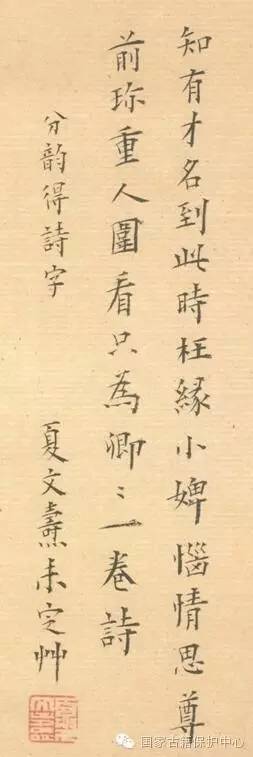 知有才名到此時枉緣小婢惱情思尊
前珎重人圍看只為卿〻一卷詩
分韵得詩字
夏文燾未定艸
国家古籍保护中心